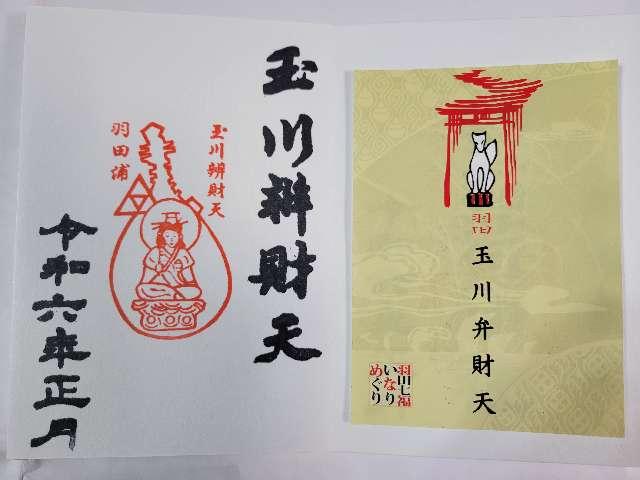 玉川辨財天
玉川辨財天
羽田浦
令和六年正月
羽田
玉川弁財天
羽田七福
いなり
めぐり